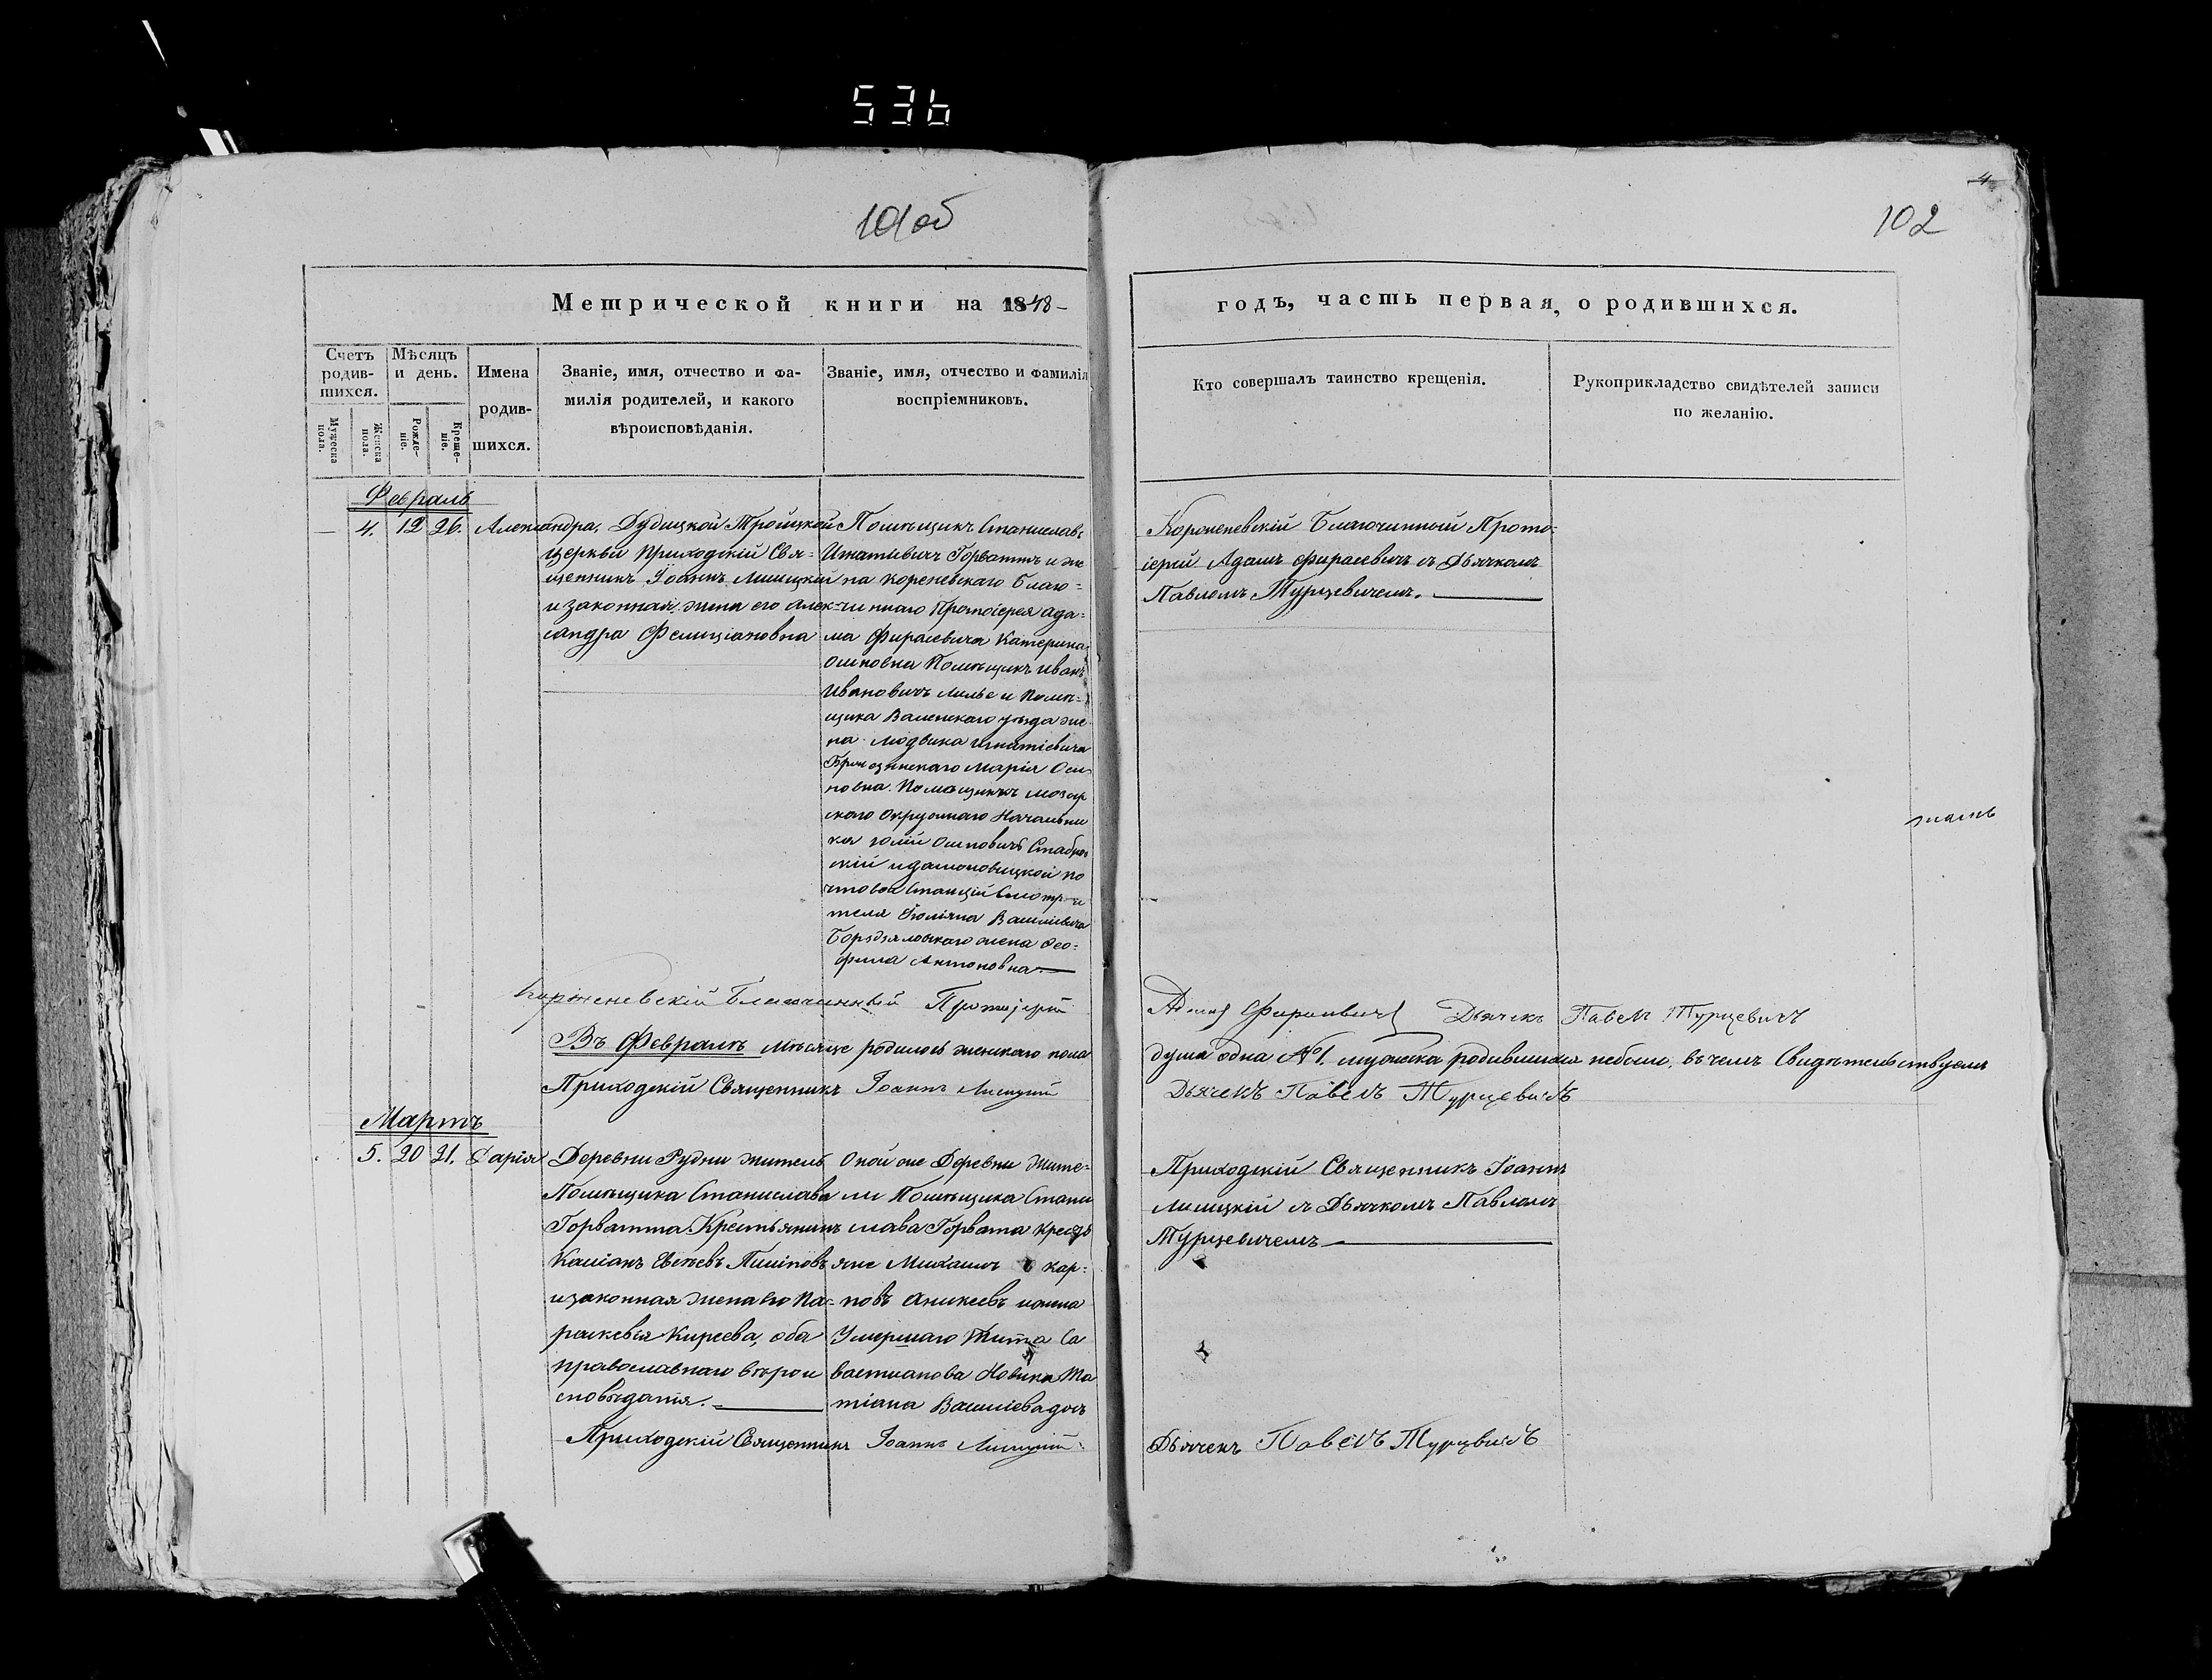 536
101об
4
102
Метрической книги на 1848-
годъ, часть первая, о родившихся.
Счетъ родив-шихся.
Мужеска пола.
Женска пола.
Мѣсяцъ и день.
Рожде-ніе.
Креще-ніе.
Имена родив-шихся.
Званіе, имя, отчество и фа-
милія родителей, и какого
вѣроисповѣданія.
Званіе, имя, отчество и фамилія
воспріемниковъ.
Кто совершалъ таинство крещенія.
Рукоприкладство свидѣтелей записи
по желанію.
Февраль
— 4. 12 26. Александра,
Дудицкой Троицкой
церкви приходскій Свя-
щенникъ Іоаннъ Лисицкій
и законная жена его Алек-
сандра Фелиціановна
Помѣщикъ Станиславъ
Игнатіевичъ Горваттъ и же
на Кореневскаго Благо-
чиннаго Протоіерея Ада-
ма Фирасевича Катерина
Осиповна Помѣщикъ Иванъ
Ивановичъ Лилье и Помѣ-
щика Виленскаго уѣзда же
на Людвика Игнатіевича
Марія Оси
повна.
скаго Окружнаго Начальни
ка Юлій Осиповичъ
скій и
чтовой Станціи Смотри
теля Юліяна Василіевича
жена Ѳео-
фила Антоновна —
Корженевскій Благочинный Прото-
іерей Адамъ Фирасевичъ съ Дьячкомъ
Павломъ Турцевичемъ. —
Корженевскій Благочинный Протоіерей
Адамъ Фирасевичъ Дьячекъ Павелъ Турцевичъ
Въ Февралѣ мѣсяце родилось женскаго пола
душа одна №1. мужеска родившихся небыло, въ чемъ Свидѣтельствуемъ
Приходскій Священникъ Іоаннъ Лисицкій
Дьячекъ Павелъ Турцевичъ
Мартъ
5. 20 21. Дарія
Деревни Рудни житель
Помѣщика Станислава
Горватта Крестьянинъ
Касіанъ Евсѣевъ
и законная жена его Па-
раскевія Киреева, оба
православнаго вѣрои
сповѣданія. —
Оной же Деревни Жите-
ли Помѣщика Стани
слава Горвата Кресть
яне Михаилъ Кар-
повъ Аникеевъ и жена
Умершаго Тита Са
вастианова Новика Та
тіана Василіева дочь
Приходскій Священникъ Іоаннъ
Лисицкій съ Дьячкомъ Павломъ
Турцевичемъ —
Приходскій Священникъ Іоаннъ Лисицкій
Дьячекъ Павелъ Турцевичъ